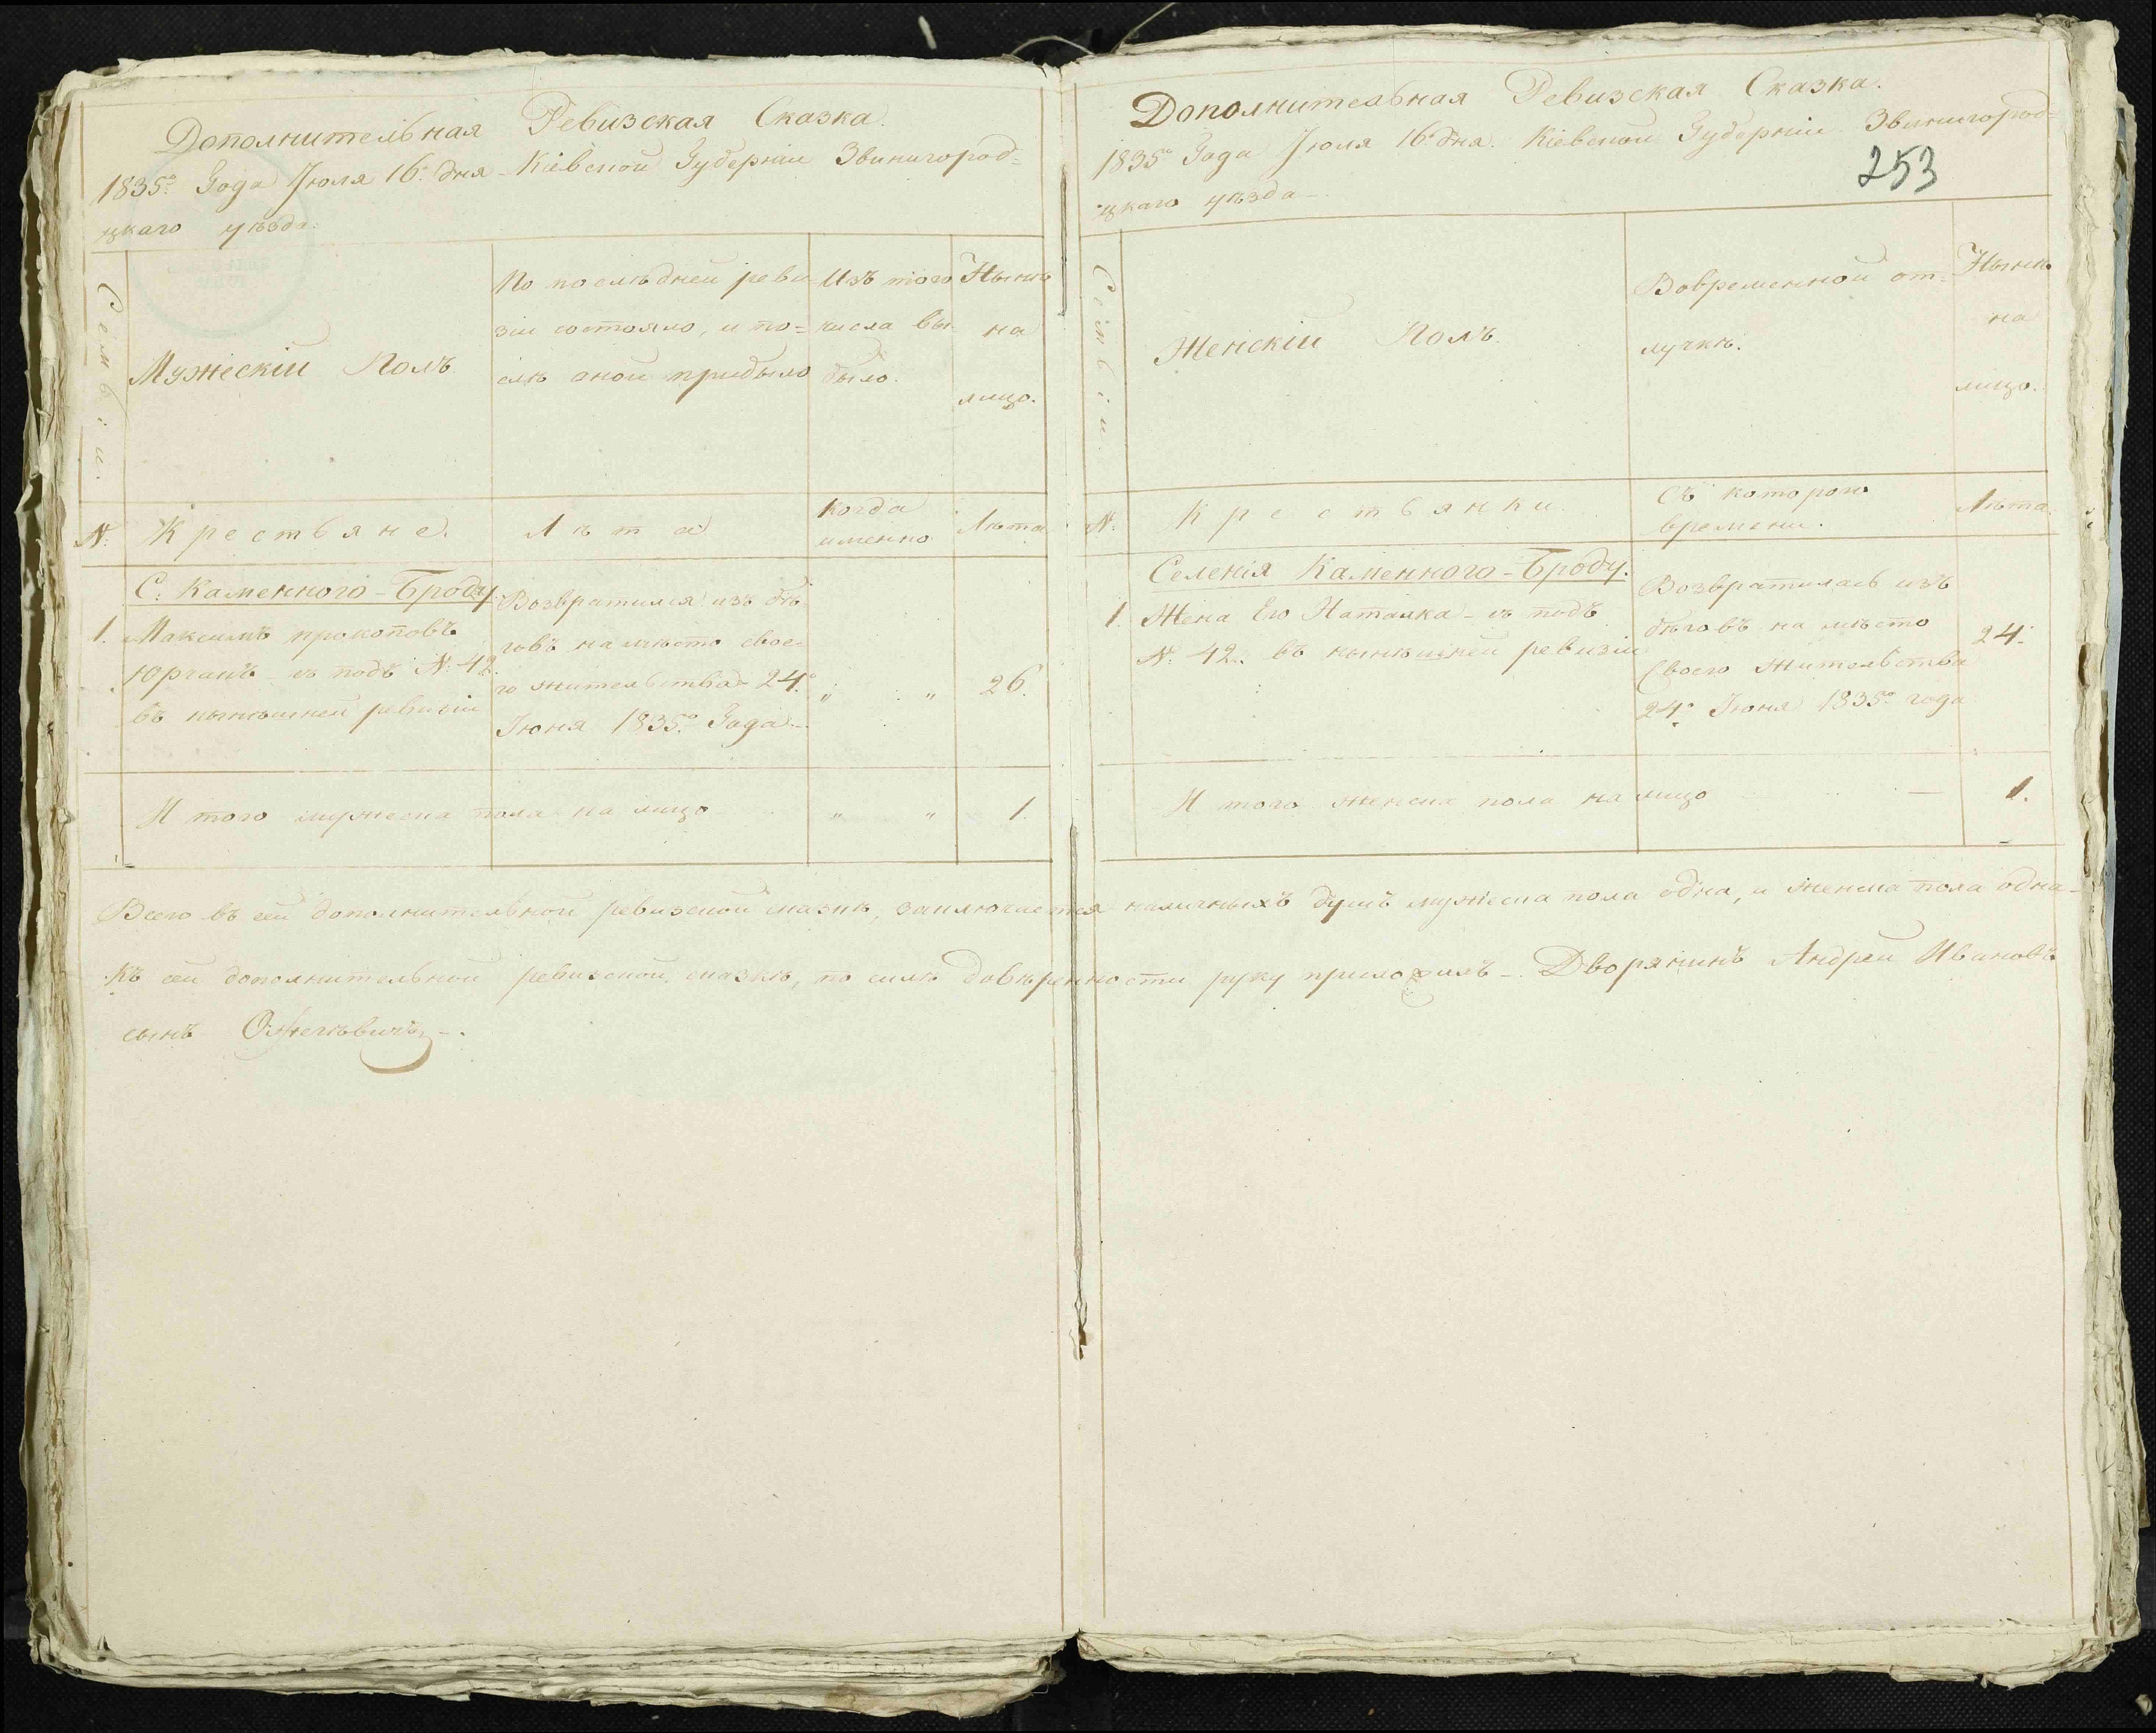 Дополнительная Ревизская Сказка.
1835го Года Июля 16го дня Кіевской Губерніи Звинигород=
цкаго уѣзда.
Семьи.
Мужескій Полъ
По послѣдней реви
зіи состояло, и по=
слѣ оной прибыло
Изъ того
числа вы
было.
Нынѣ
на
лицо.
№
Крестьяне.
Лѣта
когда
именно
Лѣта
С. Каменного-Броду.
1. Максимъ прокоповъ
въ подъ №. 42.
въ нынѣшней ревизіи
Возвратился изъ бѣ
говъ на мѣсто свое
го жительства 24го
Июня 1835го Года.
„ „ 26.
И того мужеска пола на лицо „ „ 1.
Дополнительная Ревизская Сказка.
1835го Года Июля 16го дня. Кіевской Губерніи Звинигород=
цкаго уѣзда
253
Семьи.
Женскій Полъ.
Вовременной от=
лучкѣ.
Нынѣ
на
лицо.
№
Крестьянки.
Съ котораго
времени.
Лѣта.
Селенія Каменного-Броду.
1. Жена Его Наталка - въ подъ
№. 42. въ нынѣшней ревизіи
Возвратилась изъ
бѣговъ на мѣсто
Своего Жительства
24го Июня 1835го года
24.
И того женска пола на лицо — 1.
Всего въ сей дополнительной ревизской сказкѣ, заключается наличныхъ душъ мужеска пола одна, и женска пола одна -
Къ сей дополнительной ревизской сказкѣ, по силѣ довѣренности руку приложилъ -. Дворянинъ Андрей Ивановъ
сынъ